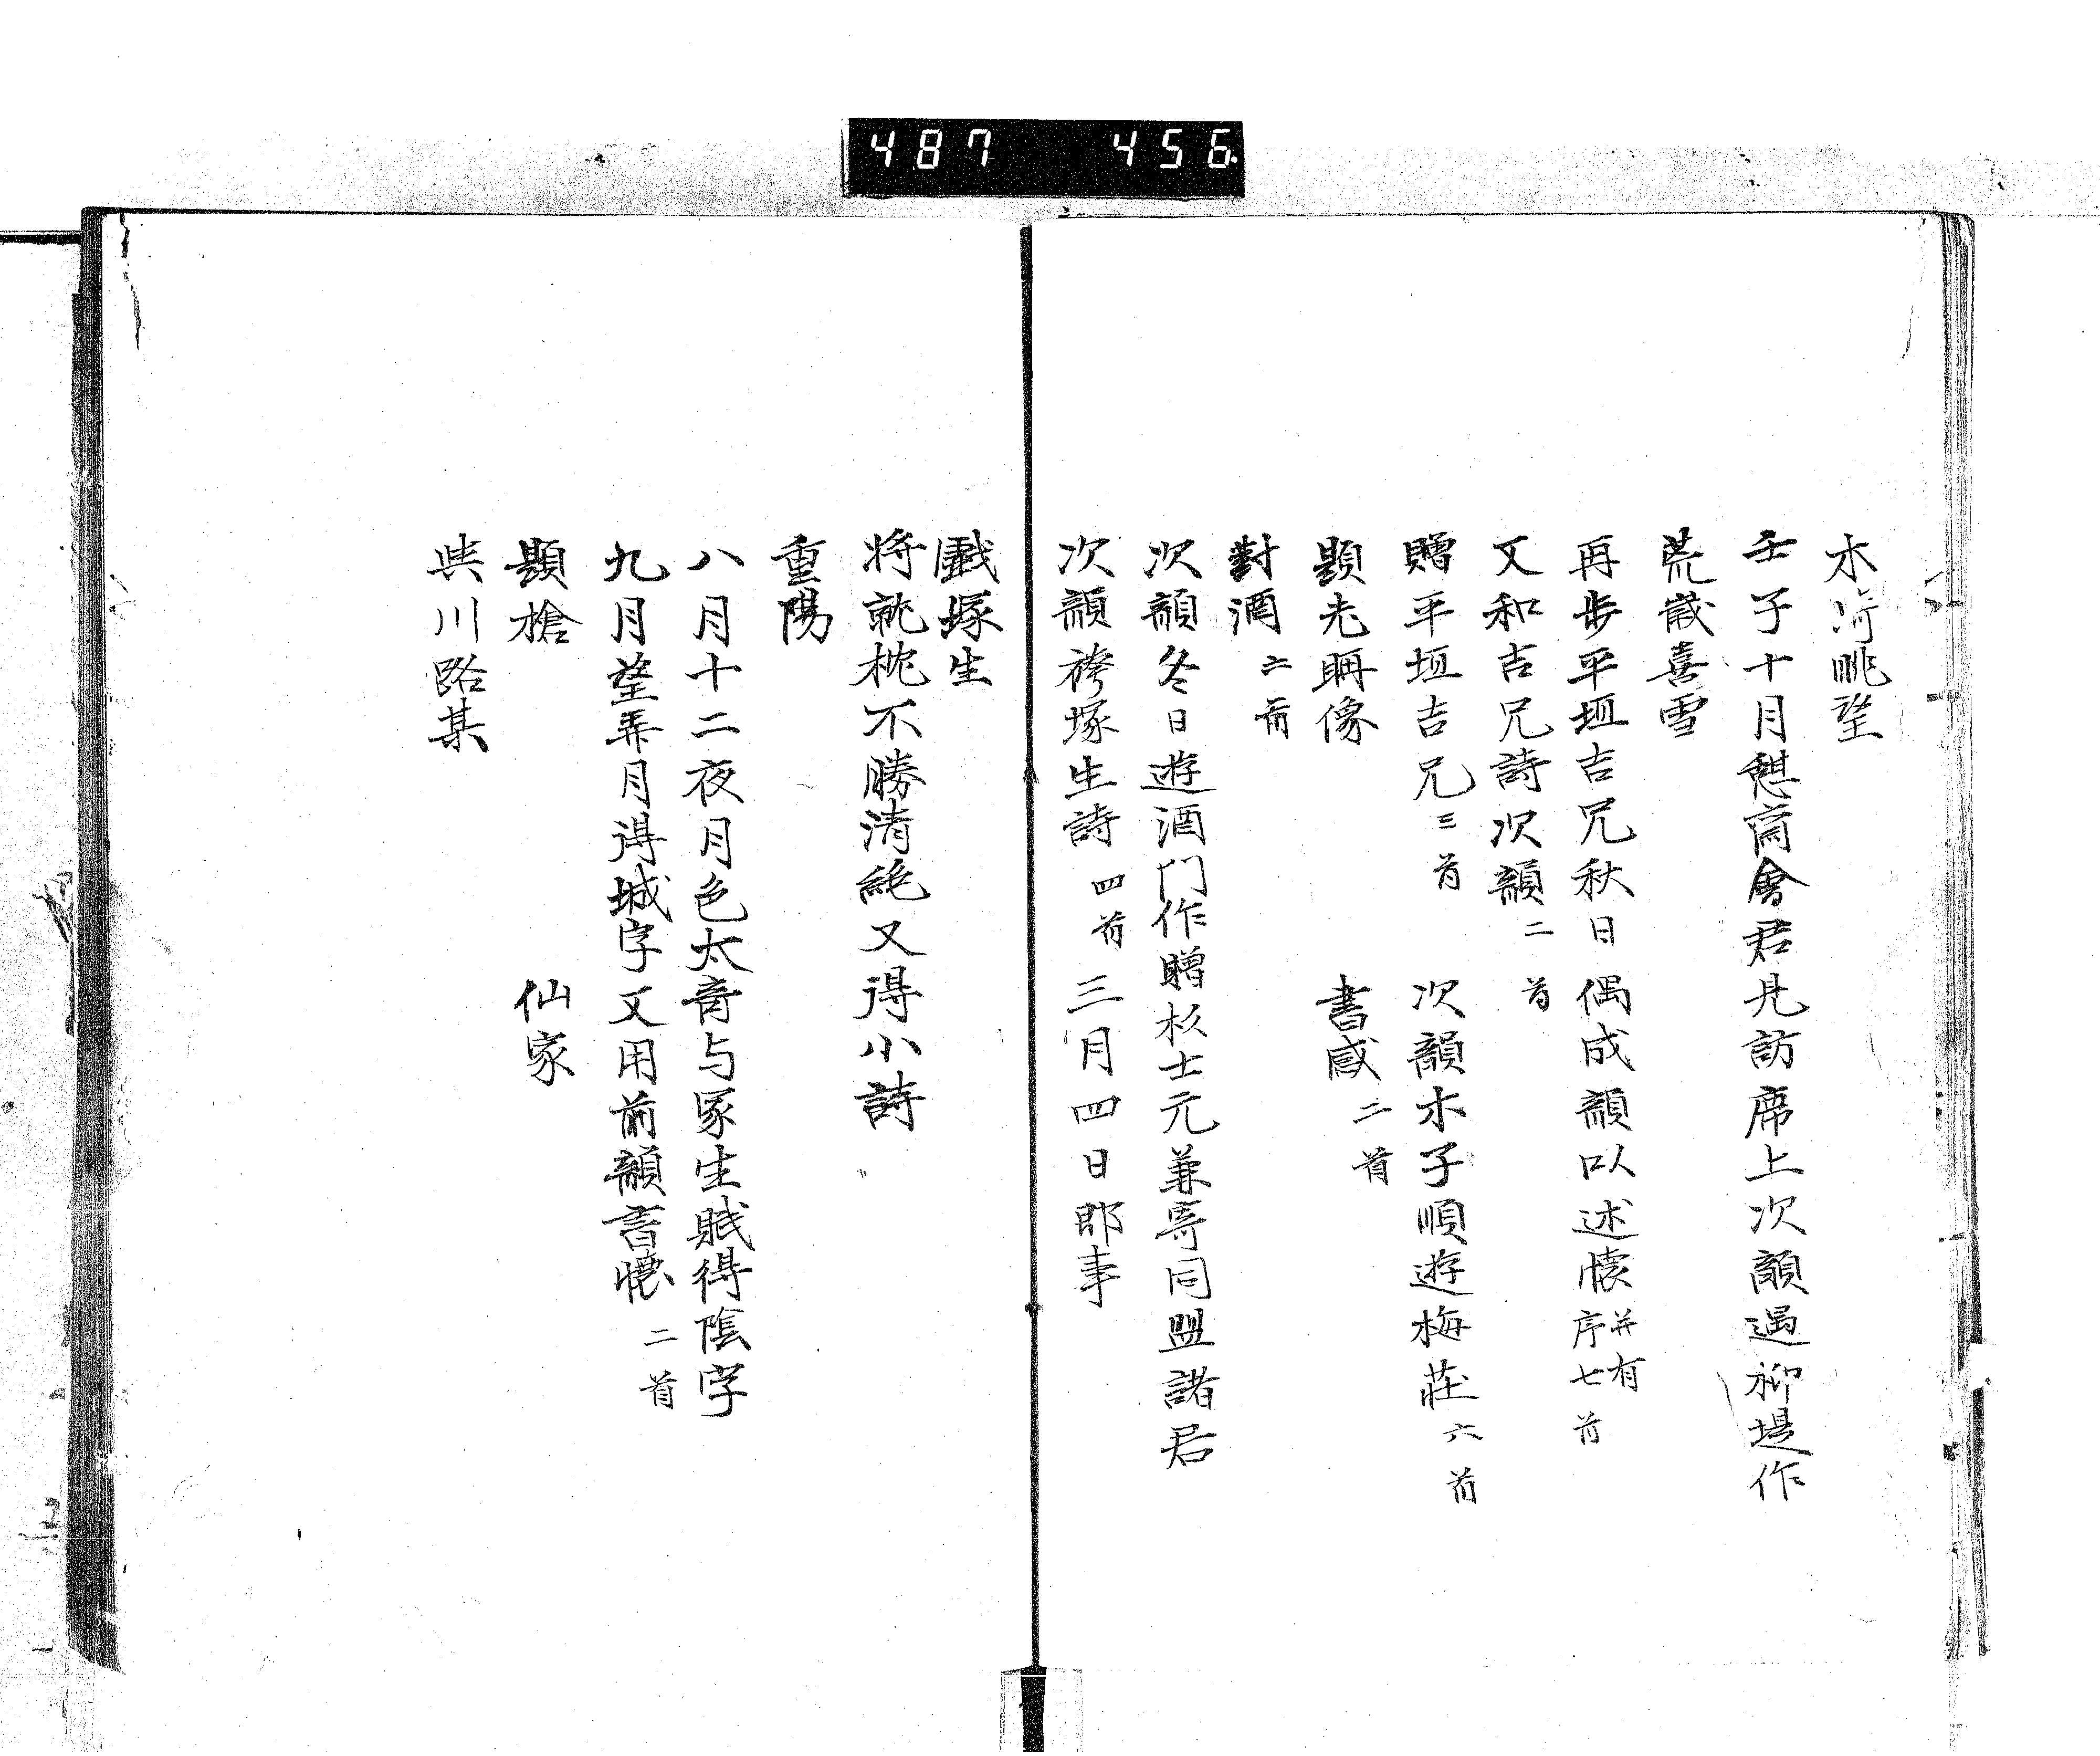 487 456
木河眺望
壬子十月憇齋會君見訪席上次韻過柳堤作
荒歳喜雪
再步平垣吉兄秋日偶成韻以述懐并有序七首
又和吉兄詩次韻二首
贈平垣吉兄三首 次韻木子順遊梅莊六首
題先聖像 書感二首
對酒二首
次韻冬日遊酒門作贈杉士元兼寄同盟諸君
次韻袴塚生詩四首 三月四日即事
戲塚生
将就枕不勝清絶又得小詩
重陽
八月十二夜月色太竒与冢生賦得陰字
九月望弄月得城字又用前韻書懐二首
題槍 仙家
與川路某